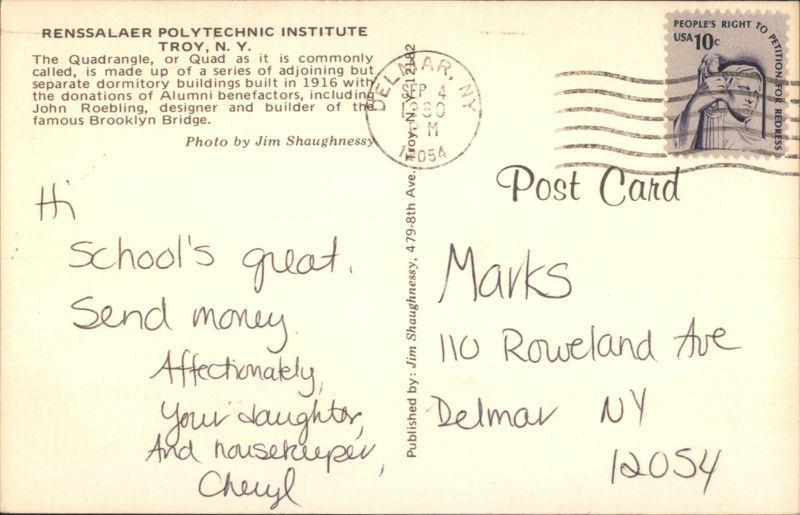 RENSSALAER POLYTECHNIC INSTITUTE
TROY, N. Y.
The Quadrangle, or Quad as it is commonly
called, is made up of a series of adjoining but
separate dormitory buildings built in 1916 with
the donations of Alumni benefactors, including
John Roebling, designer and builder of the
famous Brooklyn Bridge.
Photo by Jim Shaughnessy
DELMAR, NY
SEP 4
1980
M
12054
PEOPLE'S RIGHT TO PETITION FOR REDRESS
USA 10c
Post Card
Published by: Jim Shaughnessy, 479-8th Ave., Troy, N. Y. 12182
Hi
School's great.
Send money.
Affectionately,
Your daughter,
And housekeeper,
Cheryl
Marks
110 Roweland Ave
Delmar NY
12054